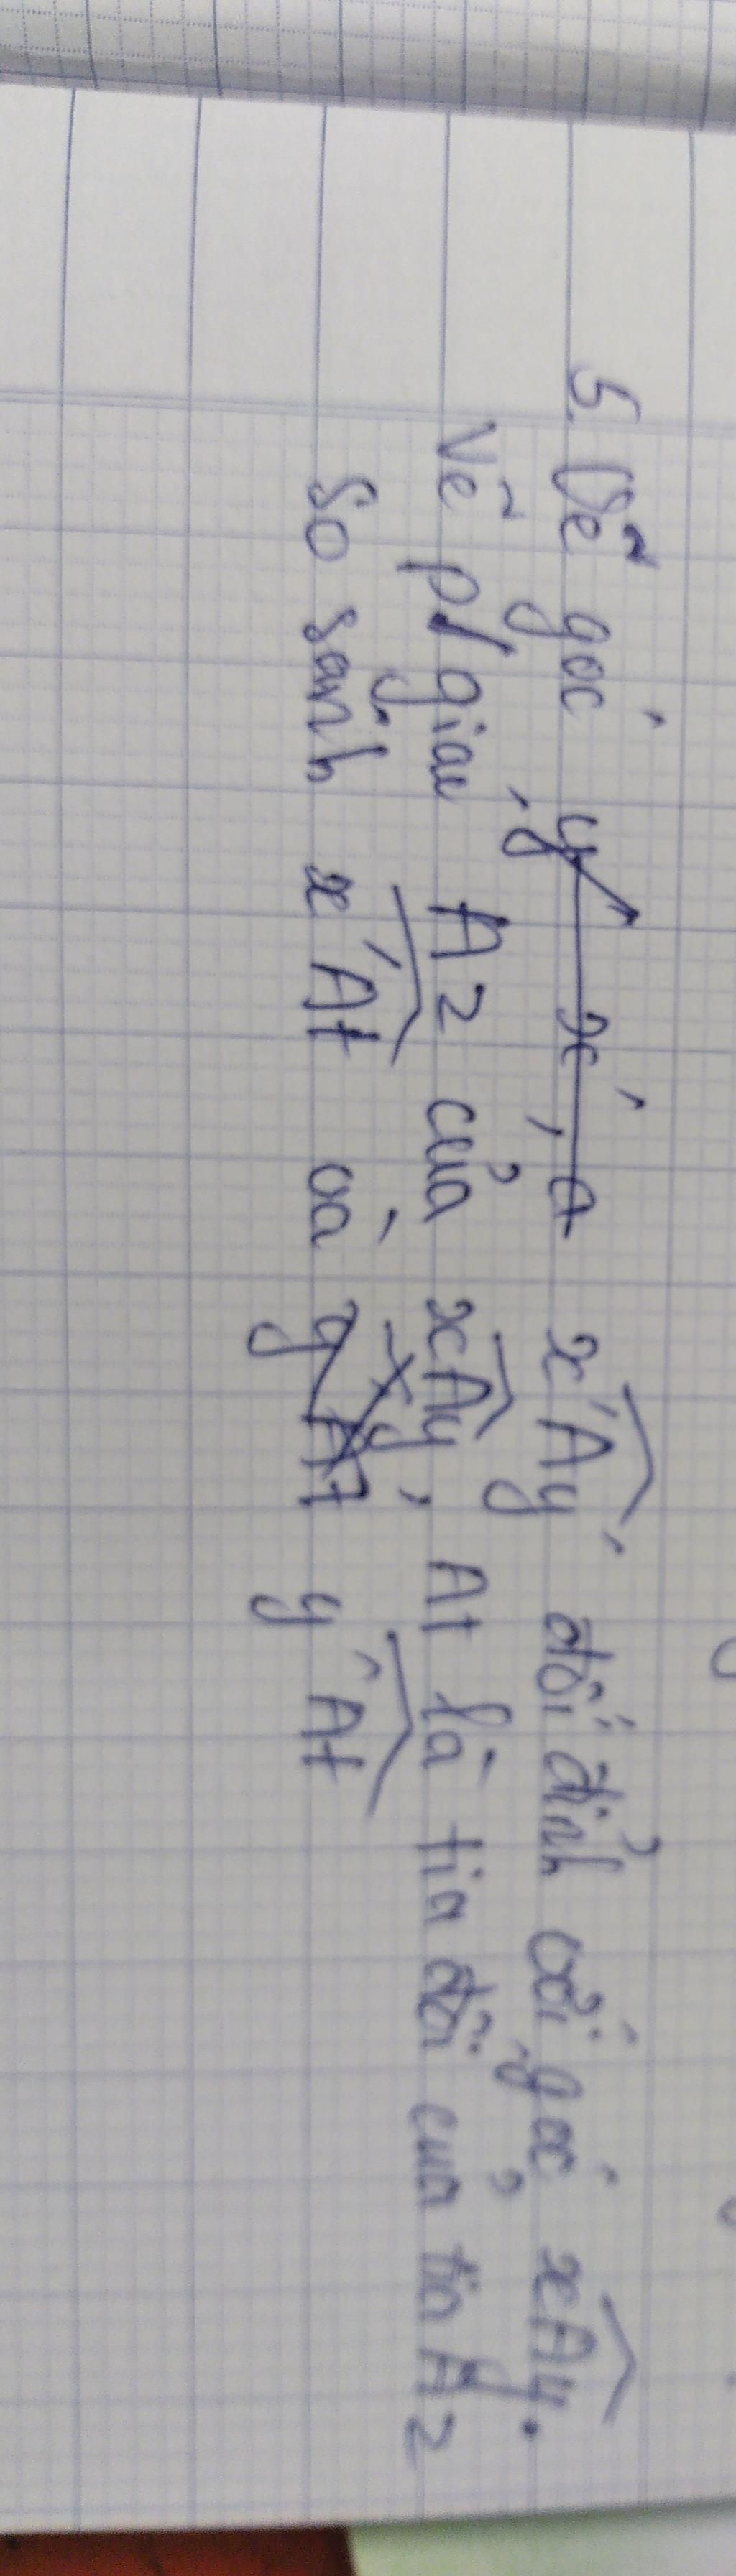 5. Vẽ góc x'Ay' đối đỉnh với góc xAy.
Vẽ p/giác Az của xAy, At là tia đối của tia Az
So sánh x'At và y'At